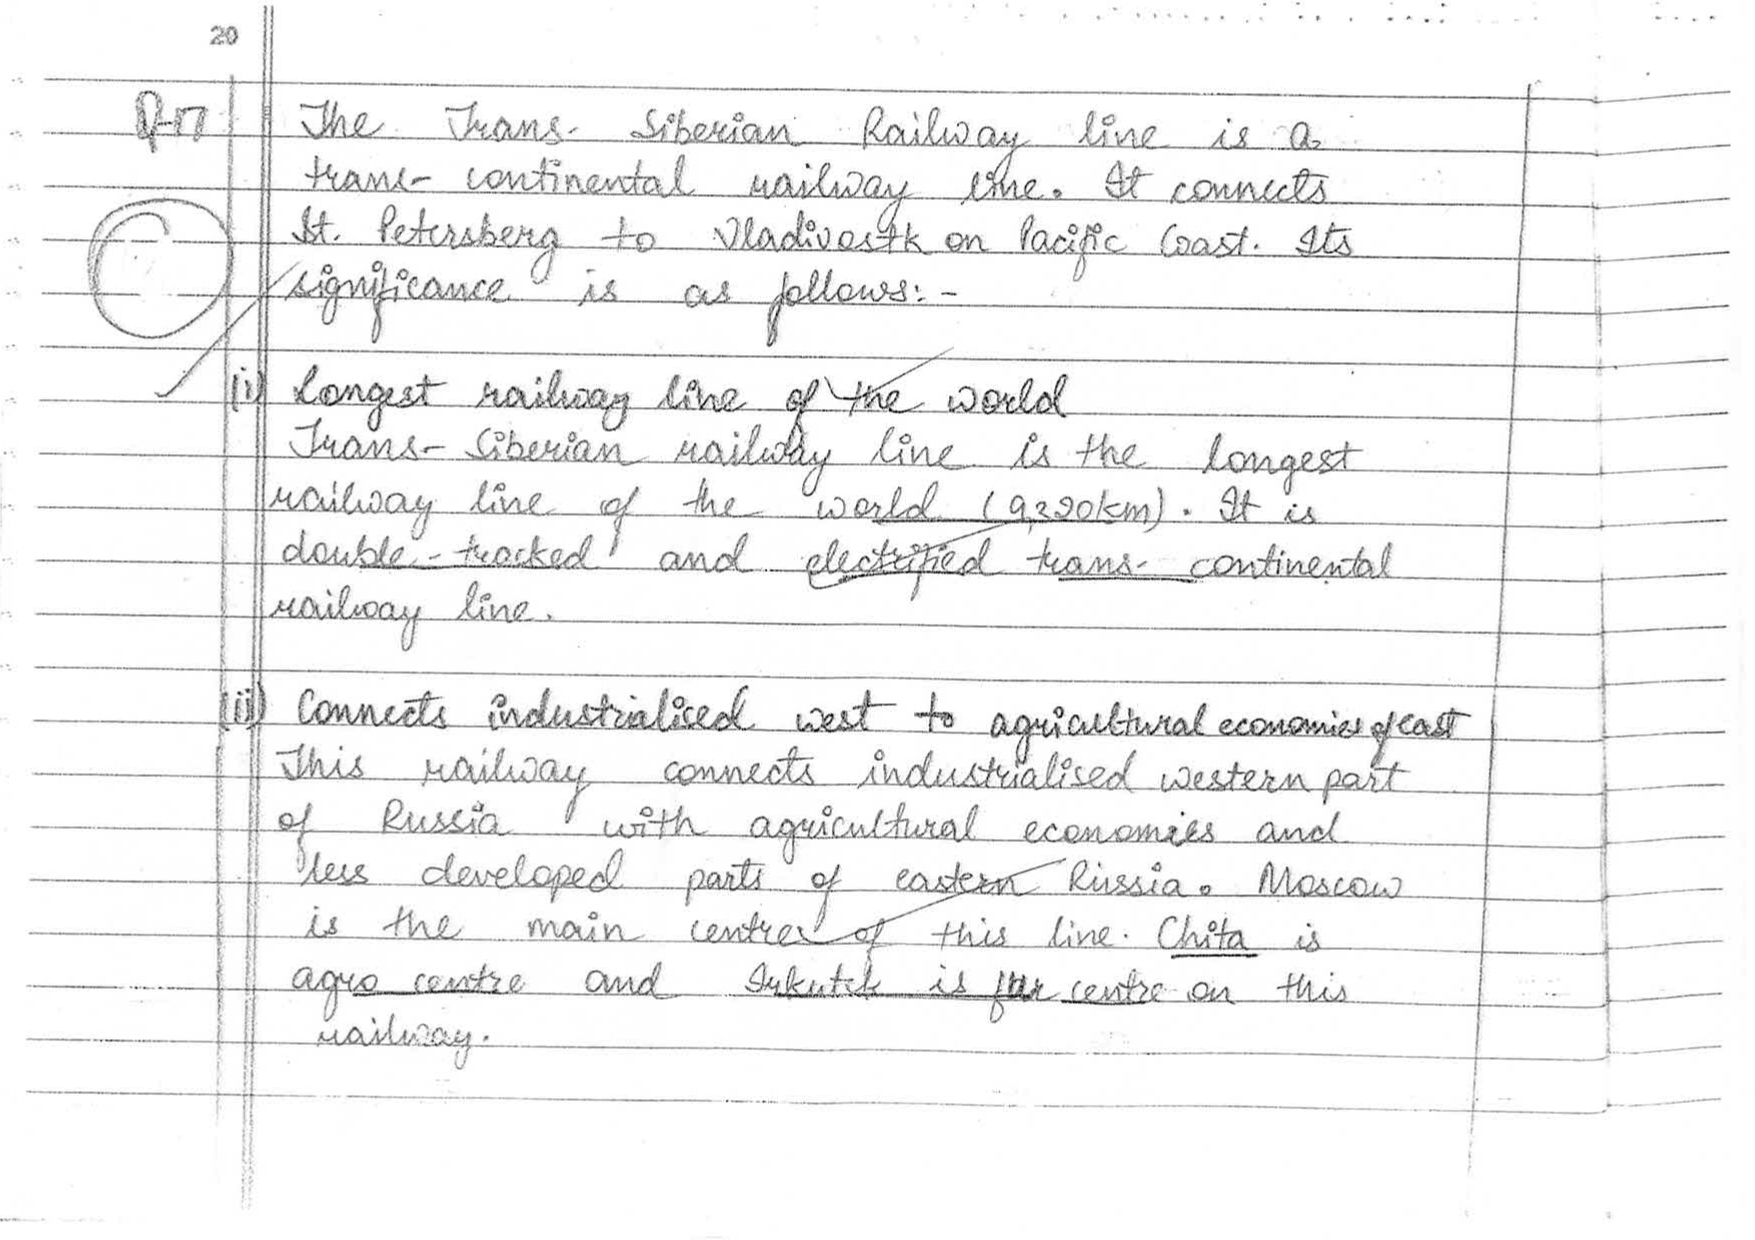 20
Q-17 The Trans- Siberian Railway line is a
trans- continental railway line. It connects
St. Petersberg to Vladivostk on Pacific Coast. Its
significance is as follows:-
(i) Longest railway line of the world
Trans- Siberian railway line is the longest
railway line of the world (9,220km). It is
double-tracked and electrified trans- continental
railway line.
(ii) Connects industrialised west to agricultural economies of east
This railway connects industrialised western part
of Russia with agricultural economies and
less developed parts of eastern Russia. Moscow
is the main centre of this line. Chita is
agro centre and Irkutsk is fur centre on this
railway.